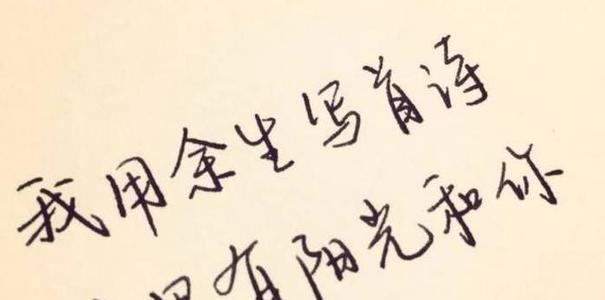 我用余生写首诗
有阳光和你